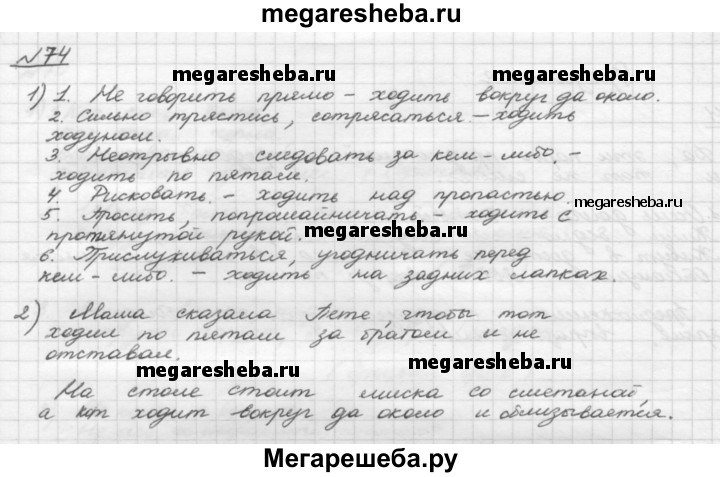 megaresheba.ru
№74
megaresheba.ru megaresheba.ru
1) 1. Не говорить прямо – ходить вокруг да около.
2. Сильно трястись, сотрясаться. – ходить
ходуном.
3. Неотрывно следовать за кем-либо. –
ходить по пятам.
4. Рисковать. – ходить над пропастью.
megaresheba.ru
5. Просить, попрошайничать – ходить с
протянутой рукой.
megaresheba.ru
6. Прислуживаться, угодничать перед
кем-либо. – ходить на задних лапках.
2) Мама сказала Пете, чтобы тот
ходил по пятам за братом и не
отставал.
megaresheba.ru megaresheba.ru
На столе стоит миска со сметаной,
а кот ходит вокруг да около и облизывается.
Мегарешеба.ру